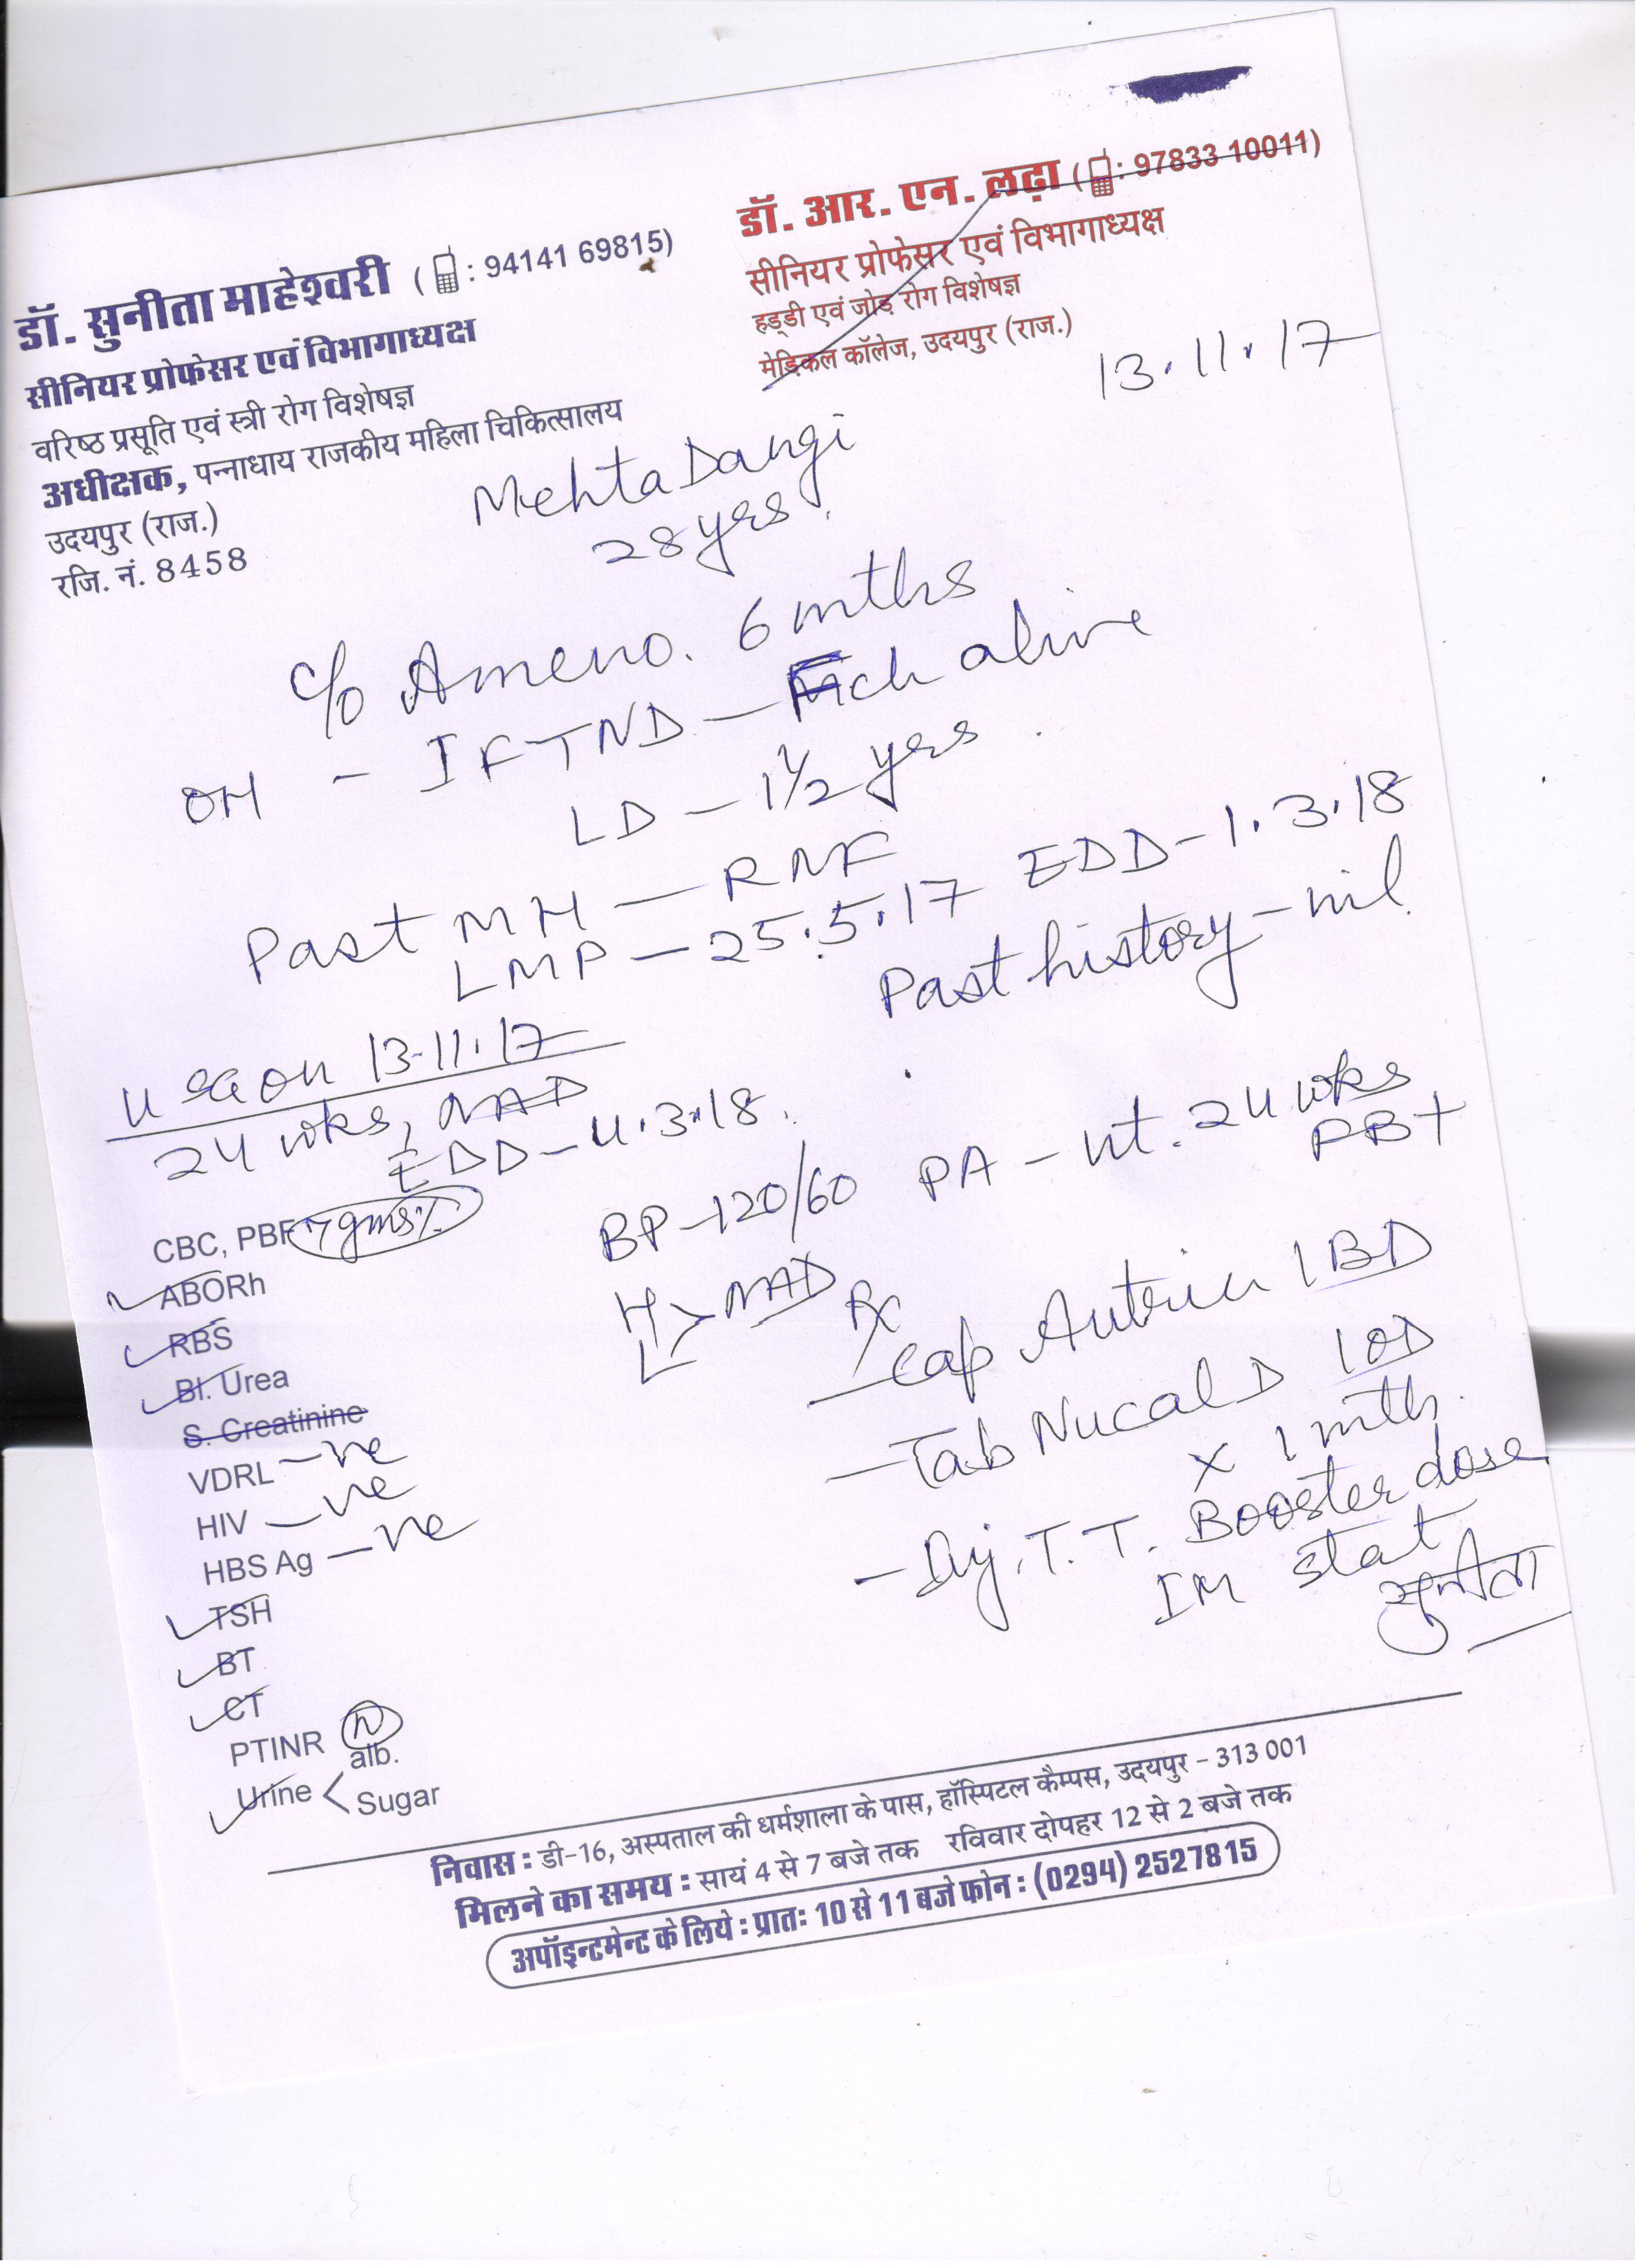 डॉ. सुनीता माहेश्वरी ( : 94141 69815)
सीनियर प्रोफेसर एवं विभागाध्यक्ष
वरिष्ठ प्रसूति एवं स्त्री रोग विशेषज्ञ
अधीक्षक, पन्नाधाय राजकीय महिला चिकित्सालय
उदयपुर (राज.)
रजि. नं. 8458
डॉ. आर. एन. लढ़ा ( : 97833 10011)
सीनियर प्रोफेसर एवं विभागाध्यक्ष
हड्डी एवं जोड़ रोग विशेषज्ञ
मेडिकल कॉलेज, उदयपुर (राज.)
13.11.17
Mehta Dangi
28 yrs.
c/o Ameno. 6 mths
OH - I FTND - Fch alive
LD - 1½ yrs
Past MH - RNF
LMP - 25.5.17 EDD - 1.3.18
Past history - nil.
USG on 13.11.17
24 wks, NAD
EDD - 4.3.18.
BP - 120/60 PA - ut. 24 wks
PB+
H
L > NAD
CBC, PBF 7 gms%
ABORh
RBS
Bl. Urea
S. Creatinine
VDRL - ve
HIV - ve
HBS Ag - ve
TSH
BT
CT
PTINR N
Urine < alb.
Sugar
Rx
- Cap Autrin 1 BD
- Tab Nucal D 1 OD
x 1 mth.
- Inj. T.T. Booster dose
IM stat
सुनीता
निवास : डी-16, अस्पताल की धर्मशाला के पास, हॉस्पिटल कैम्पस, उदयपुर - 313 001
मिलने का समय : सायं 4 से 7 बजे तक रविवार दोपहर 12 से 2 बजे तक
अपॉइन्टमेन्ट के लिये : प्रातः 10 से 11 बजे फोन : (0294) 2527815